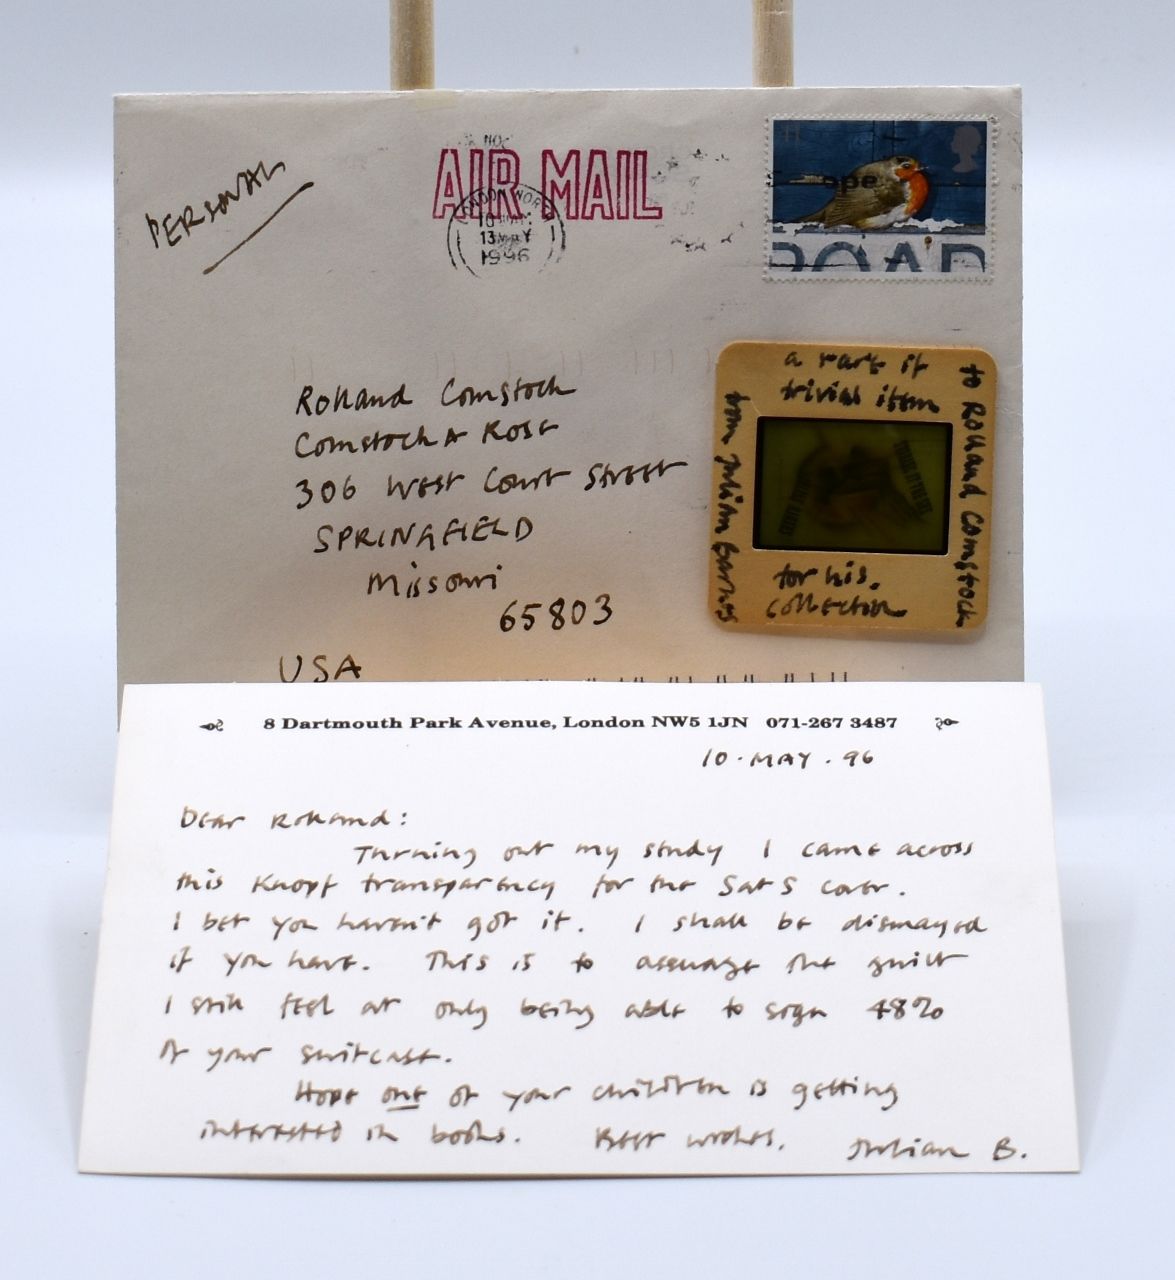 PERSONAL
AIR MAIL
LONDON NOR
13 MAY
1996
ope
ROAD
Rolland Comstock
Comstock & Rose
306 West Court Street
SPRINGFIELD
Missouri
65803
USA
a rare if
trivial item
to Rolland Comstock
for his
collection
from Julian Barnes
8 Dartmouth Park Avenue, London NW5 1JN 071-267 3487
10 . MAY . 96
Dear Rolland :
Turning out my study I came across
this Knopf transparency for the S at S cover.
I bet you haven't got it. I shall be dismayed
if you have. This is to assuage the guilt
I still feel at only being able to sign 48%
of your suitcase.
Hope one of your children is getting
interested in books. Best wishes, Julian B.